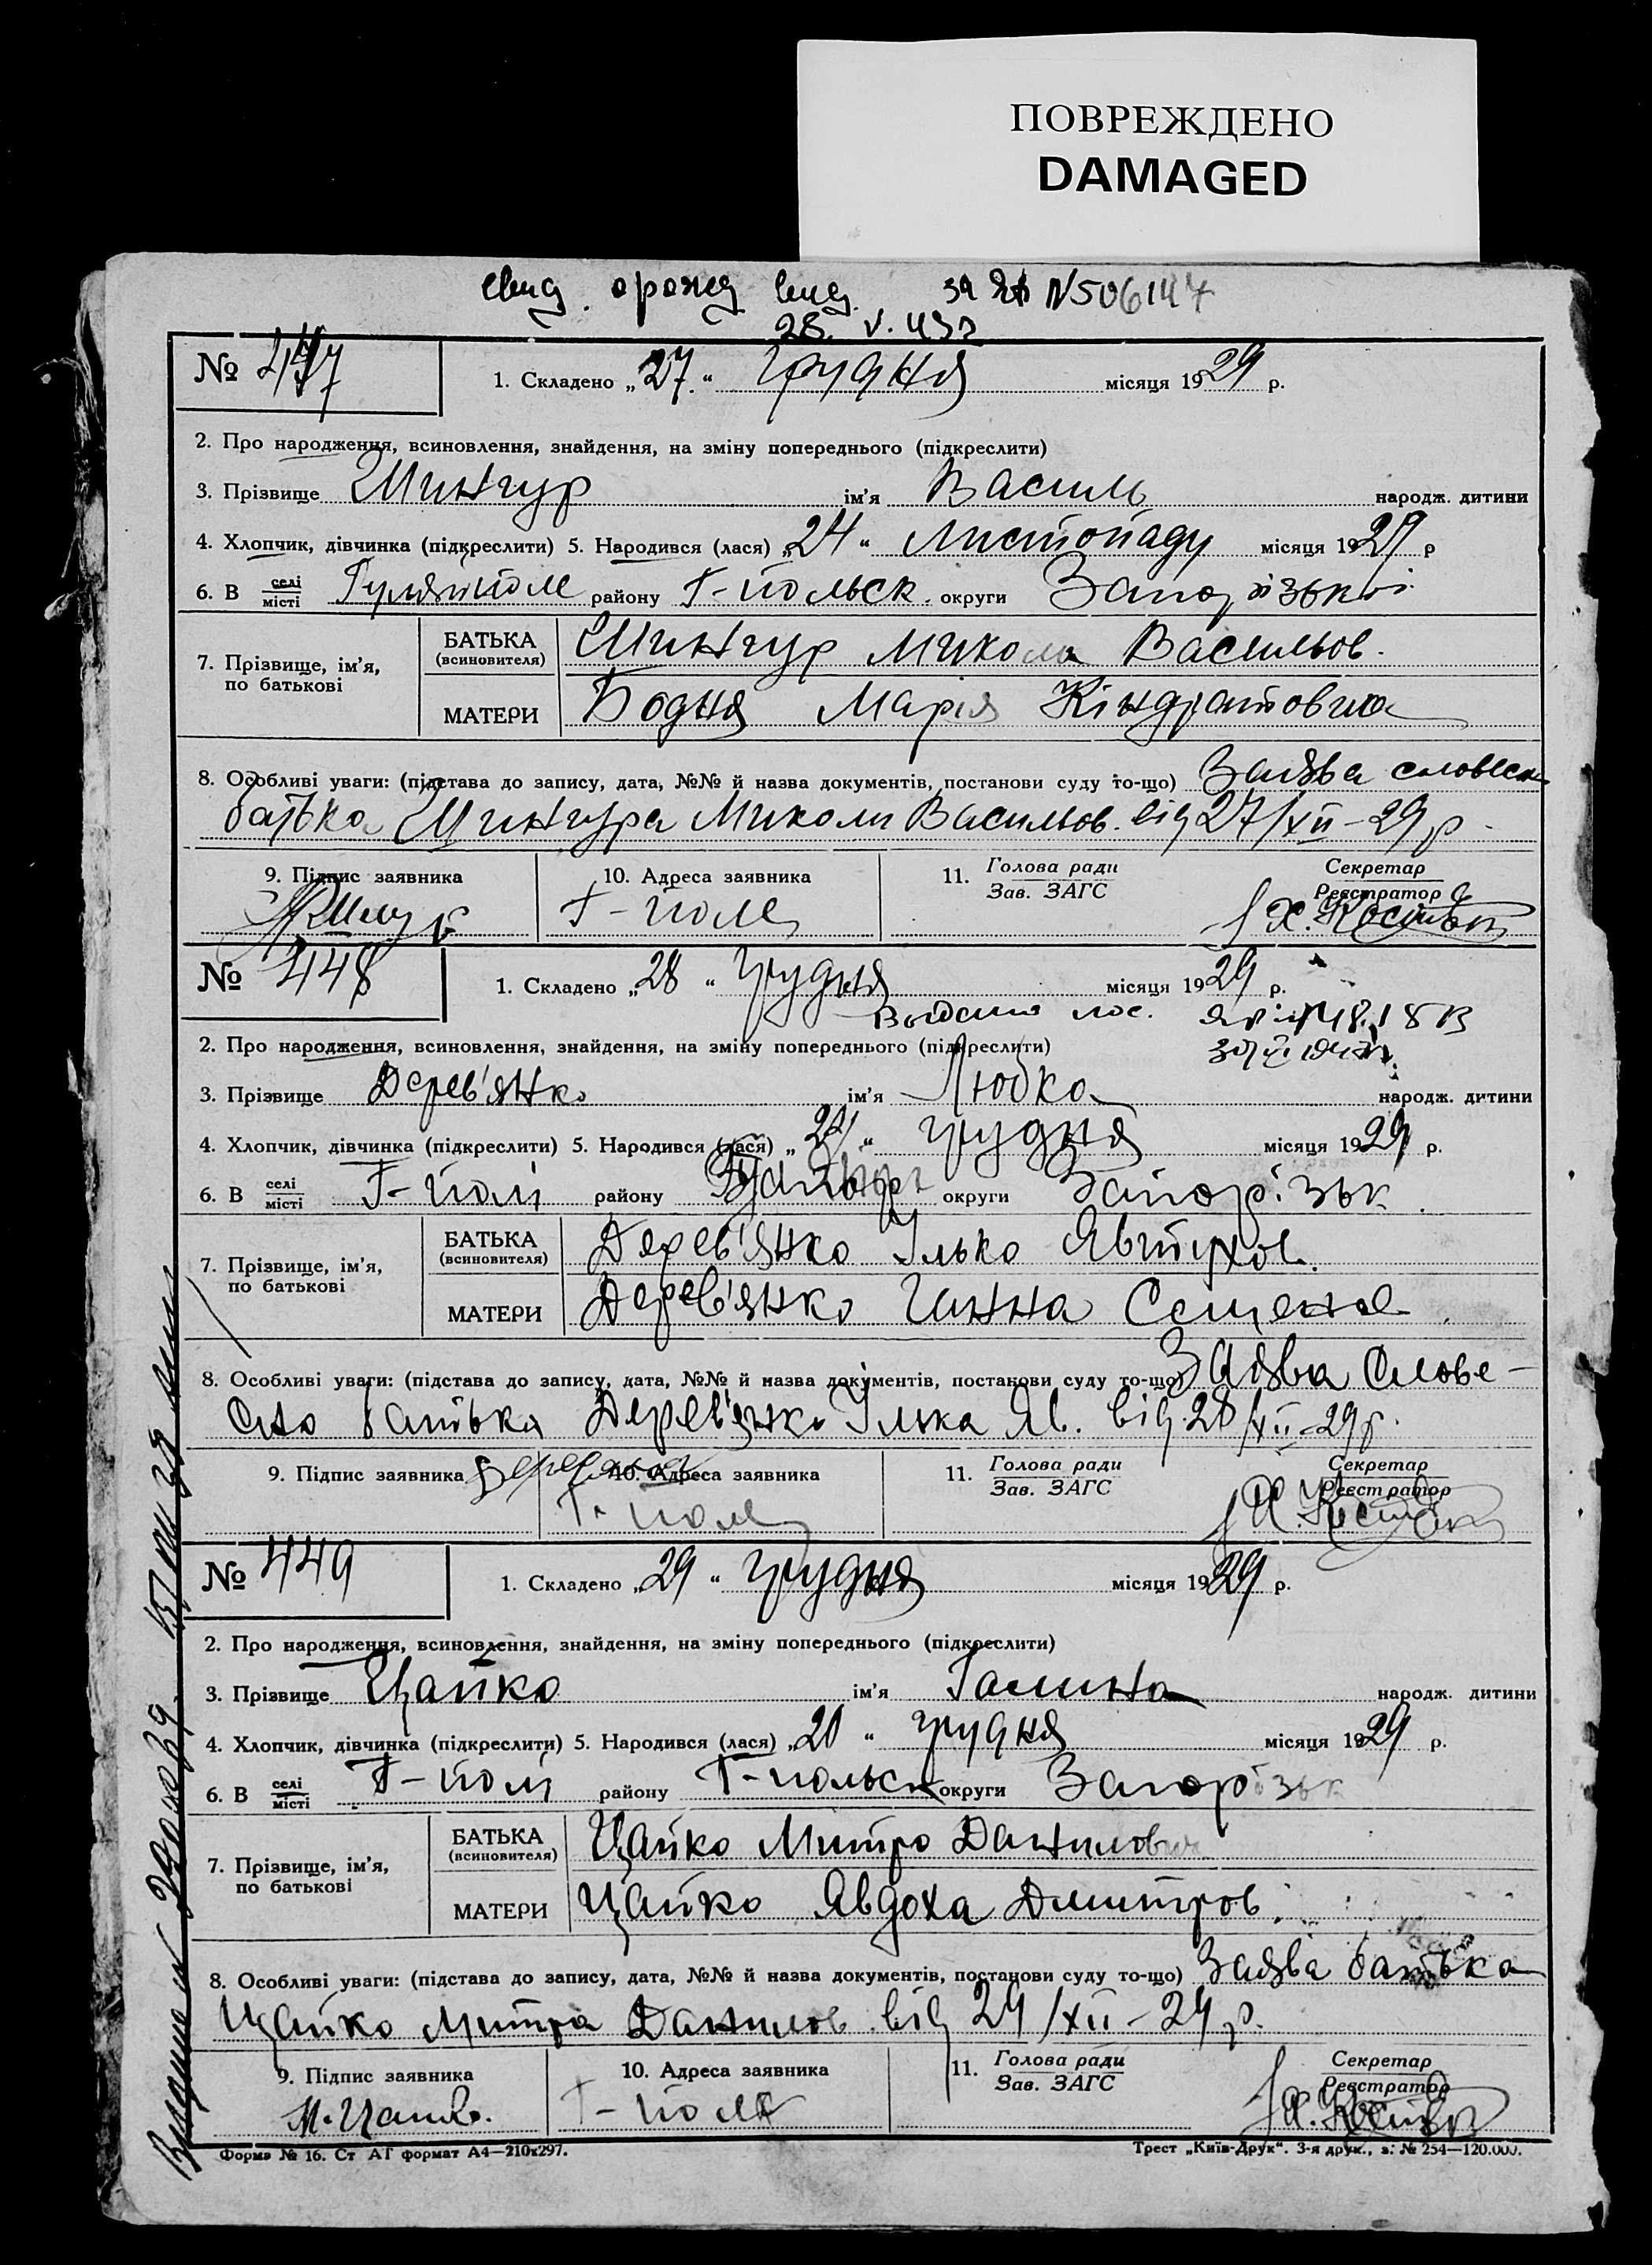 ПОВРЕЖДЕНО
DAMAGED
свид. о рожд. выд. за ЯБ N506147
28. V. 43 г
№ 447 1. Складено „27.“ грудня місяця 1929 р.
2. Про народження, всиновлення, знайдення, на зміну попереднього (підкреслити)
3. Прізвище Шингур ім'я Василь народж. дитини
4. Хлопчик, дівчинка (підкреслити) 5. Народився (лася) „24“ листопаду місяця 1929 р
6. В селі місті Гуляйполе району Г-польск. округи Запорізької
7. Прізвище, ім'я, по батькові
БАТЬКА (всиновителя) Шингур Микола Васильов.
МАТЕРИ Бодня Марія Кіндратовна
8. Особливі уваги: (підстава до запису, дата, №№ й назва документів, постанови суду то-що) Заява словесн
батька Шингура Миколи Васильов. від 27/XII-29 р.
9. Підпис заявника 10. Адреса заявника 11. Голова ради Зав. ЗАГС Секретар Реєстратор
Г-поле
№ 448 1. Складено „28“ грудня місяця 1929 р.
2. Про народження, всиновлення, знайдення, на зміну попереднього (підкреслити)
3. Прізвище Дерев'янко ім'я Любка народж. дитини
4. Хлопчик, дівчинка (підкреслити) 5. Народився (лася) „24“ грудня місяця 1929 р.
6. В селі місті Г-полі району округи Запорізьк.
7. Прізвище, ім'я, по батькові
БАТЬКА (всиновителя) Дерев'янко Ілько Явтухов.
МАТЕРИ Дерев'янко Ганна Семенов.
8. Особливі уваги: (підстава до запису, дата, №№ й назва документів, постанови суду то-що) Заява слове-
сна батька Дерев'янко Ілька Яв. від 28/XII-29 р.
9. Підпис заявника 10. Адреса заявника 11. Голова ради Зав. ЗАГС Секретар Реєстратор
Г-поле
№ 449 1. Складено „29“ грудня місяця 1929 р.
2. Про народження, всиновлення, знайдення, на зміну попереднього (підкреслити)
3. Прізвище Цапко ім'я Галина народж. дитини
4. Хлопчик, дівчинка (підкреслити) 5. Народився (лася) „20“ грудня місяця 1929 р.
6. В селі місті Г-полі району Г-польск округи Запорізьк
7. Прізвище, ім'я, по батькові
БАТЬКА (всиновителя) Цапко Митро Данилович
МАТЕРИ Цапко Явдоха Дмитров.
8. Особливі уваги: (підстава до запису, дата, №№ й назва документів, постанови суду то-що) Заява батька
Цапко Митра Данилов. від 29/XII-29 р.
9. Підпис заявника 10. Адреса заявника 11. Голова ради Зав. ЗАГС Секретар Реєстратор
М. Цапко. Г-поле
Форма № 16. Ст АГ формат А4—210х297. Трест „Київ-Друк“. 3-я друк., з. № 254—120.000.